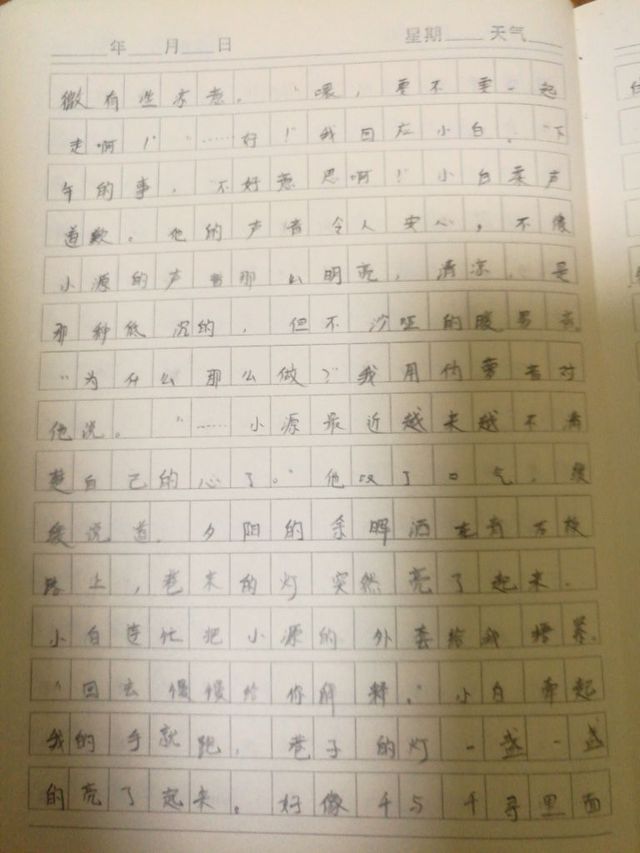 年 月 日 星期 天气
微有些凉意。“喂，要不要一起
走啊！”“……好！”我回应小白。“下
午的事，不好意思啊！”小白柔声
道歉。他的声音令人安心，不像
小源的声音那么明亮，清凉，是
那种低沉的，但不沙哑的暖男音
“为什么那么做？”我用伪 音对
他说。“……小源最近越来越不清
楚自己的心了。”他叹了口气，缓
缓说道。夕阳的余晖洒在青石板
路上，巷末的灯突然亮了起来。
小白连忙把小源的外套给我 紧。
“回去慢慢给你解释。”小白牵起
我的手就跑，巷子的灯一盏一盏
的亮了起来。好像千与千寻里面